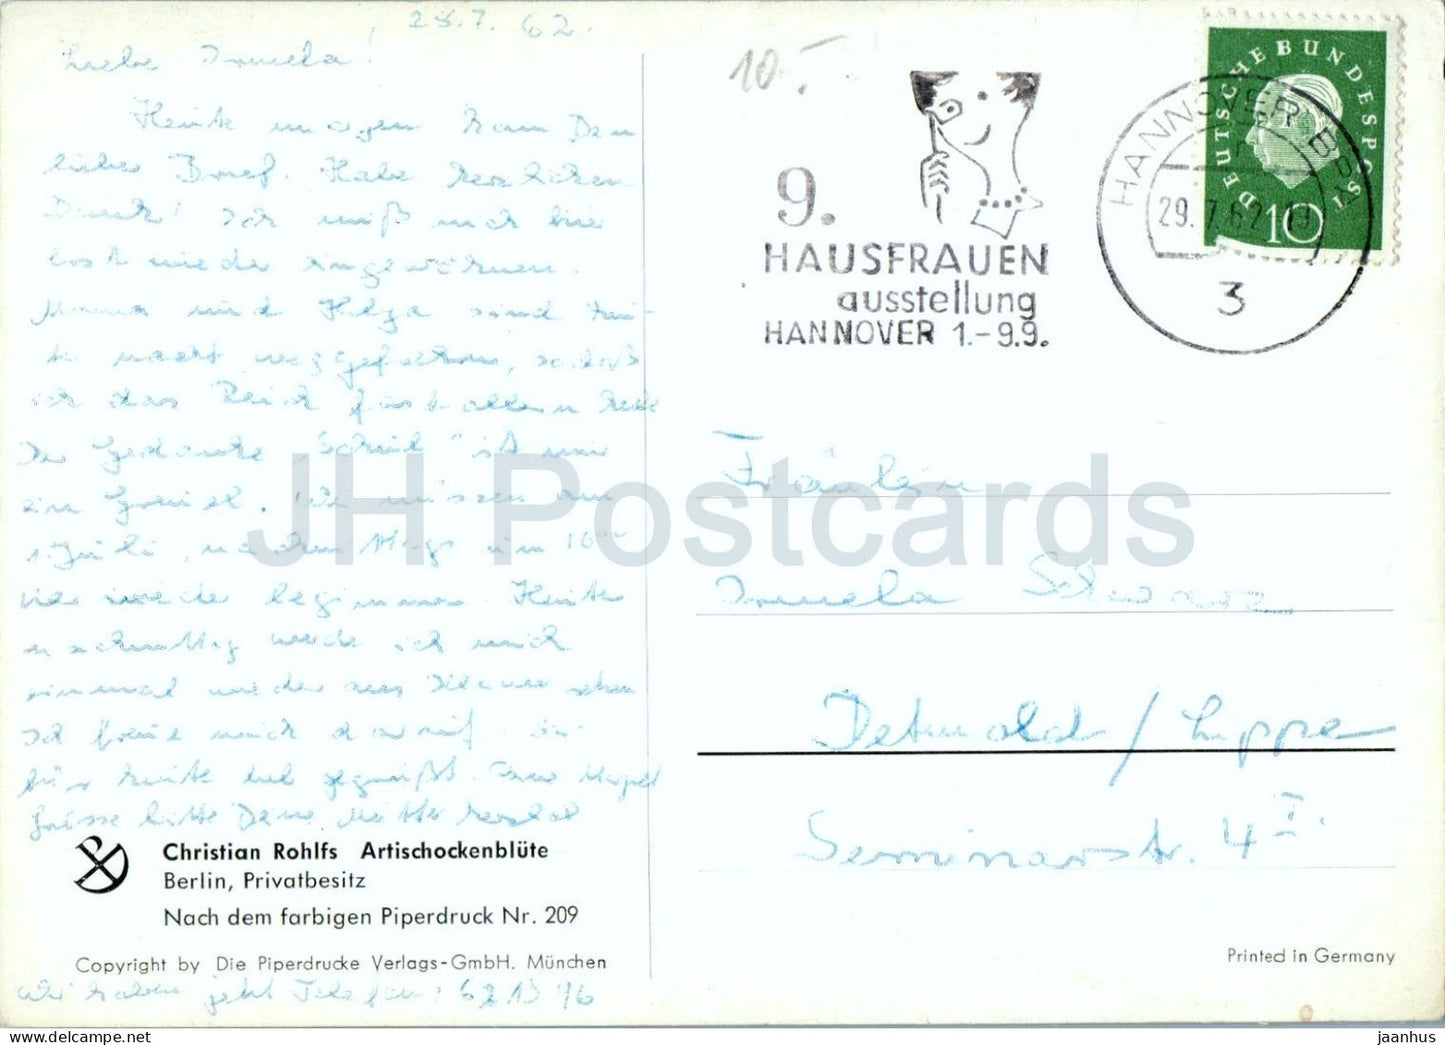 28.7.62.
Liebe Irmela!
Heute morgen kam Dein
lieber Brief. Habe herzlichen
Dank! Ich muß mich hier
erst wieder eingewöhnen.
Mama und Helga sind heu-
te nacht weggefahren, sodaß
ich das Reich fast allein habe
Der Gedanke "Schule" ist mir
ein Greuel. Wir müssen am
nachmittags um 16
wieder beginnen. Heute
nachmittag werde ich mich
einmal wieder ans Klavier setzen
Ich freue mich darauf. Sei
für heute lieb gegrüßt.
Grüsse bitte Deine Mutter herzlich
Christian Rohlfs Artischockenblüte
Berlin, Privatbesitz
Nach dem farbigen Piperdruck Nr. 209
Copyright by Die Piperdrucke Verlags-GmbH. München
Wir haben jetzt Telefon: 621376
10.-
9.
HAUSFRAUEN
ausstellung
HANNOVER 1.-9.9.
HANNOVER BPA
29.7.62
3
DEUTSCHE BUNDESPOST
10
Fräulein
Irmela Schwarz
Detmold / Lippe
Seminarstr. 4 I.
Printed in Germany
JH Postcards
jaanhus